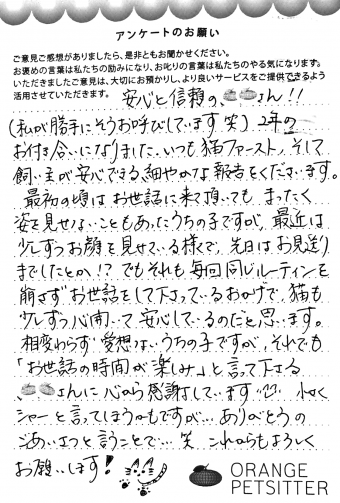 アンケートのお願い
ご意見ご感想がありましたら、是非ともお聞かせください。
お褒めの言葉は私たちの励みになり、お叱りの言葉は私たちのやる気になります。
いただきましたご意見は、大切にお預かりし、より良いサービスをご提供できるよう
活用させていただきます。
安心と信頼の、さん!!
(私が勝手にそうお呼びしています 笑) 2年の
お付き合いになりました。いつも猫ファースト、そして
飼い主が安心できる、細やかな報告をくださいます。
最初の頃はお世話に来て頂いても まったく
姿を見せないこともあったうちの子ですが、最近は
少しずつお顔を見せている様で、先日はお見送り
までしたとか!? でもそれも毎回同じルーティンを
崩さずお世話をして下さっているおかげで、猫も
少しずつ心開いて安心しているのだと思います。
相変わらず愛想ないうちの子ですが、それでも
「お世話の時間が楽しみ」と言って下さる
、さんに心から感謝しています
シャーと言ってしまうかもですが… ありがとうの
ごあいさつと言うことで… 笑 これからもよろしく
お願いします!
ORANGE
PETSITTER